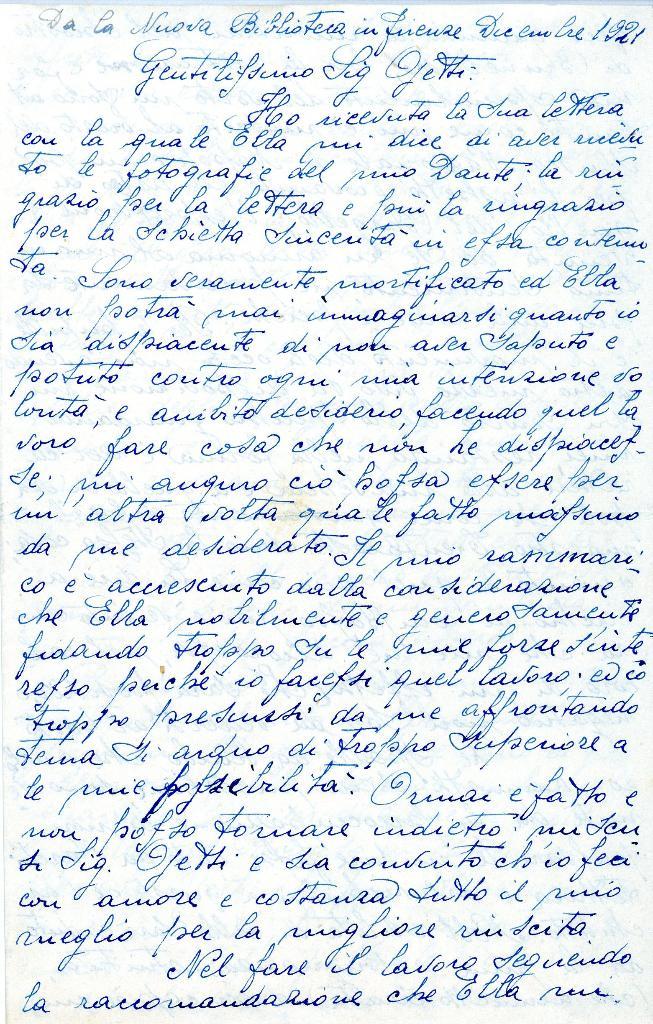 Da la Nuova Biblioteca in Firenze Dicembre 1921
Gentilissimo Sig Ojetti:
Ho ricevuta la sua lettera
con la quale Ella mi dice di aver ricevu
to le fotografie del mio Dante; la rin
grazio per la lettera e più la ringrazio
per la schietta sincerità in essa contenu
ta. Sono veramente mortificato ed Ella
non potrà mai immaginarsi quanto io
sia dispiacente di non aver saputo e
potuto contro ogni mia intenzione vo
lontà, e ambito desiderio, facendo quel la
voro fare cosa che non le dispiaces-
se; mi auguro ciò possa essere per
un altra volta quale fatto massimo
da me desiderato. Il mio rammari-
co è accresciuto dalla considerazione
che Ella nobilmente e generosamente
fidando troppo su le mie forze s'inte
resso perchè io facessi quel lavoro; ed io
troppo presunsi da me affrontando
tema si arduo di troppo superiore a
le mie possibilità. Ormai è fatto e
non posso tornare indietro: mi scu
si Sig. Ojetti e sia convinto ch'io feci
con amore e costanza tutto il mio
meglio per la migliore riuscita
Nel fare il lavoro seguendo
la raccomandazione che Ella mi